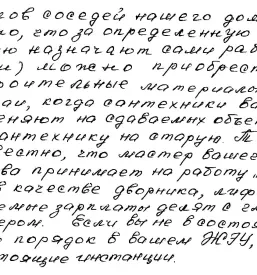 гов соседей нашего дом
но, что за определенную
ую назначают сами раб
и) можно приобрест
роительные материало
аи, когда сантехники ва
еняют на сдаваемых объе
антехнику на старую. Т
вестно, что мастер вашег
ва принимает на работу
в качестве дворника, лиф
емые зарплаты делят с гл
ером. Если вы не в состоя
порядок в вашем ЖЭУ,
тоящие инстанции.